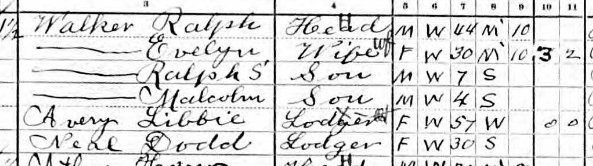 3 4 5 6 7 8 9 10 11
1/2 Walker Ralph Head H M W 44 M 10
—— Evelyn Wife Wf F W 30 M 10 3 2
—— Ralph S Son M W 7 S
—— Malcolm Son M W 4 S
Avery Libbie Lodger F W 57 W 0 0
Nell Dodd Lodger F W 30 S